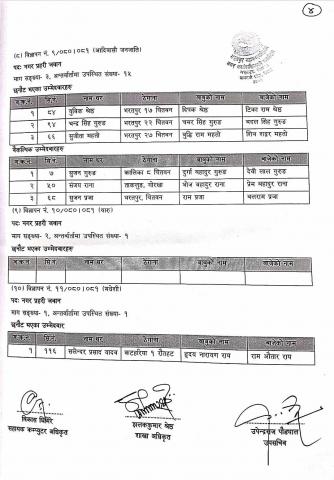 ४
(८) विज्ञापन नं. ९/०८०।०८१ (आदिवासी जनजाति)
पदः नगर प्रहरी जवान
माग सङ्ख्या- ३, अन्तर्वार्तामा उपस्थित संख्या- १५
छनौट भएका उम्मेदवारहरू
ब.क्र.नं. सि.नं. नाम थर ठेगाना बाबुको नाम बाजेको नाम
१ ८४ युनिक श्रेष्ठ भरतपुर १७ चितवन दिपक श्रेष्ठ टिका राम श्रेष्ठ
२ ९४ चन्द्र सिंह गुरुङ भरतपुर २२ चितवन चमर सिंह गुरुङ गुरुङ
३ ६६ सुजीता महतो भरतपुर २७ चितवन बुद्धि राम महतो महतो
वैकल्पिक उम्मेदवारहरू
१ ७ सुजन गुरुङ कालिका ८ चितवन दुर्गा बहादुर गुरुङ देवी लाल गुरुङ
२ ५० संजय राना गोरखा भोज बहादुर राना प्रेम बहादुर राना
३ ६८ सुजन प्रजा भरतपुर, चितवन राम प्रजा प्रजा
(९) विज्ञापन नं. १०/०८०।०८१ (थारु)
पदः नगर प्रहरी जवान
माग सङ्ख्या- २, अन्तर्वार्तामा उपस्थित संख्या- १
छनौट भएका उम्मेदवारहरू
ब.क्र.नं. सि.नं. नाम थर ठेगाना बाबुको नाम बाजेको नाम
(१०) विज्ञापन नं. ११/०८०।०८१ (मधेशी)
पदः नगर प्रहरी जवान
माग सङ्ख्या- १, अन्तर्वार्तामा उपस्थित संख्या- १
छनौट भएका उम्मेदवार
ब.क्र.नं. सि.नं. नाम थर ठेगाना बाबुको नाम बाजेको नाम
१ ११६ सतेन्दर प्रसाद यादव कटहरिया १ रौतहट हृदय नारायण राय राम औतार राय
विकास घिमिरे
सहायक कम्प्युटर अधिकृत
झलककुमार श्रेष्ठ
शाखा अधिकृत
उपेन्द्रराज पौड्याल
उपसचिव